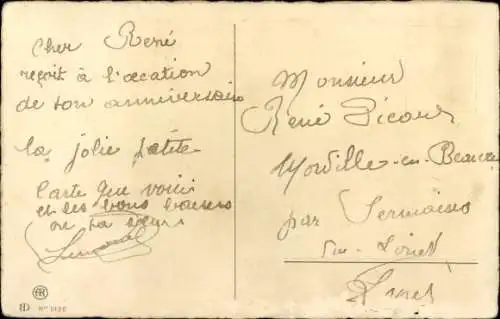 Cher René
reçoit à l'occation
de ton anniversaire
la jolie petite
Carte que voici
et des bons baisers
de ta sœur
Monsieur
René Picau
Morville-en-Beauce
par Sermaises
Loiret
Nº